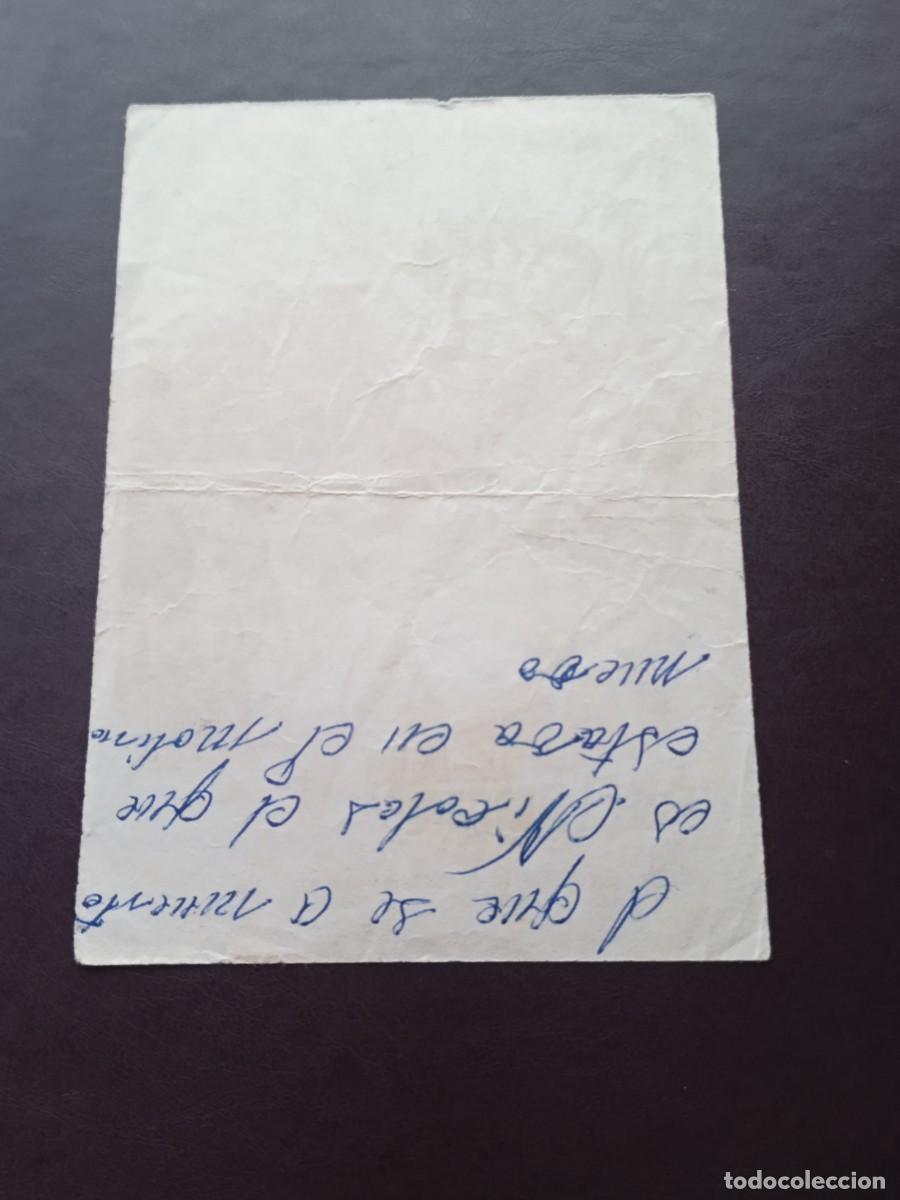 el que se a muerto
es Nicolas el que
estava en el molino
nuevo
todocoleccion